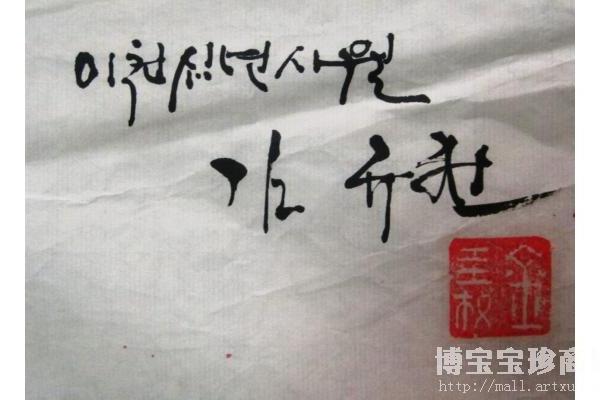 이천십년사월
김 규천
博宝宝珍商
http://mall.artxu